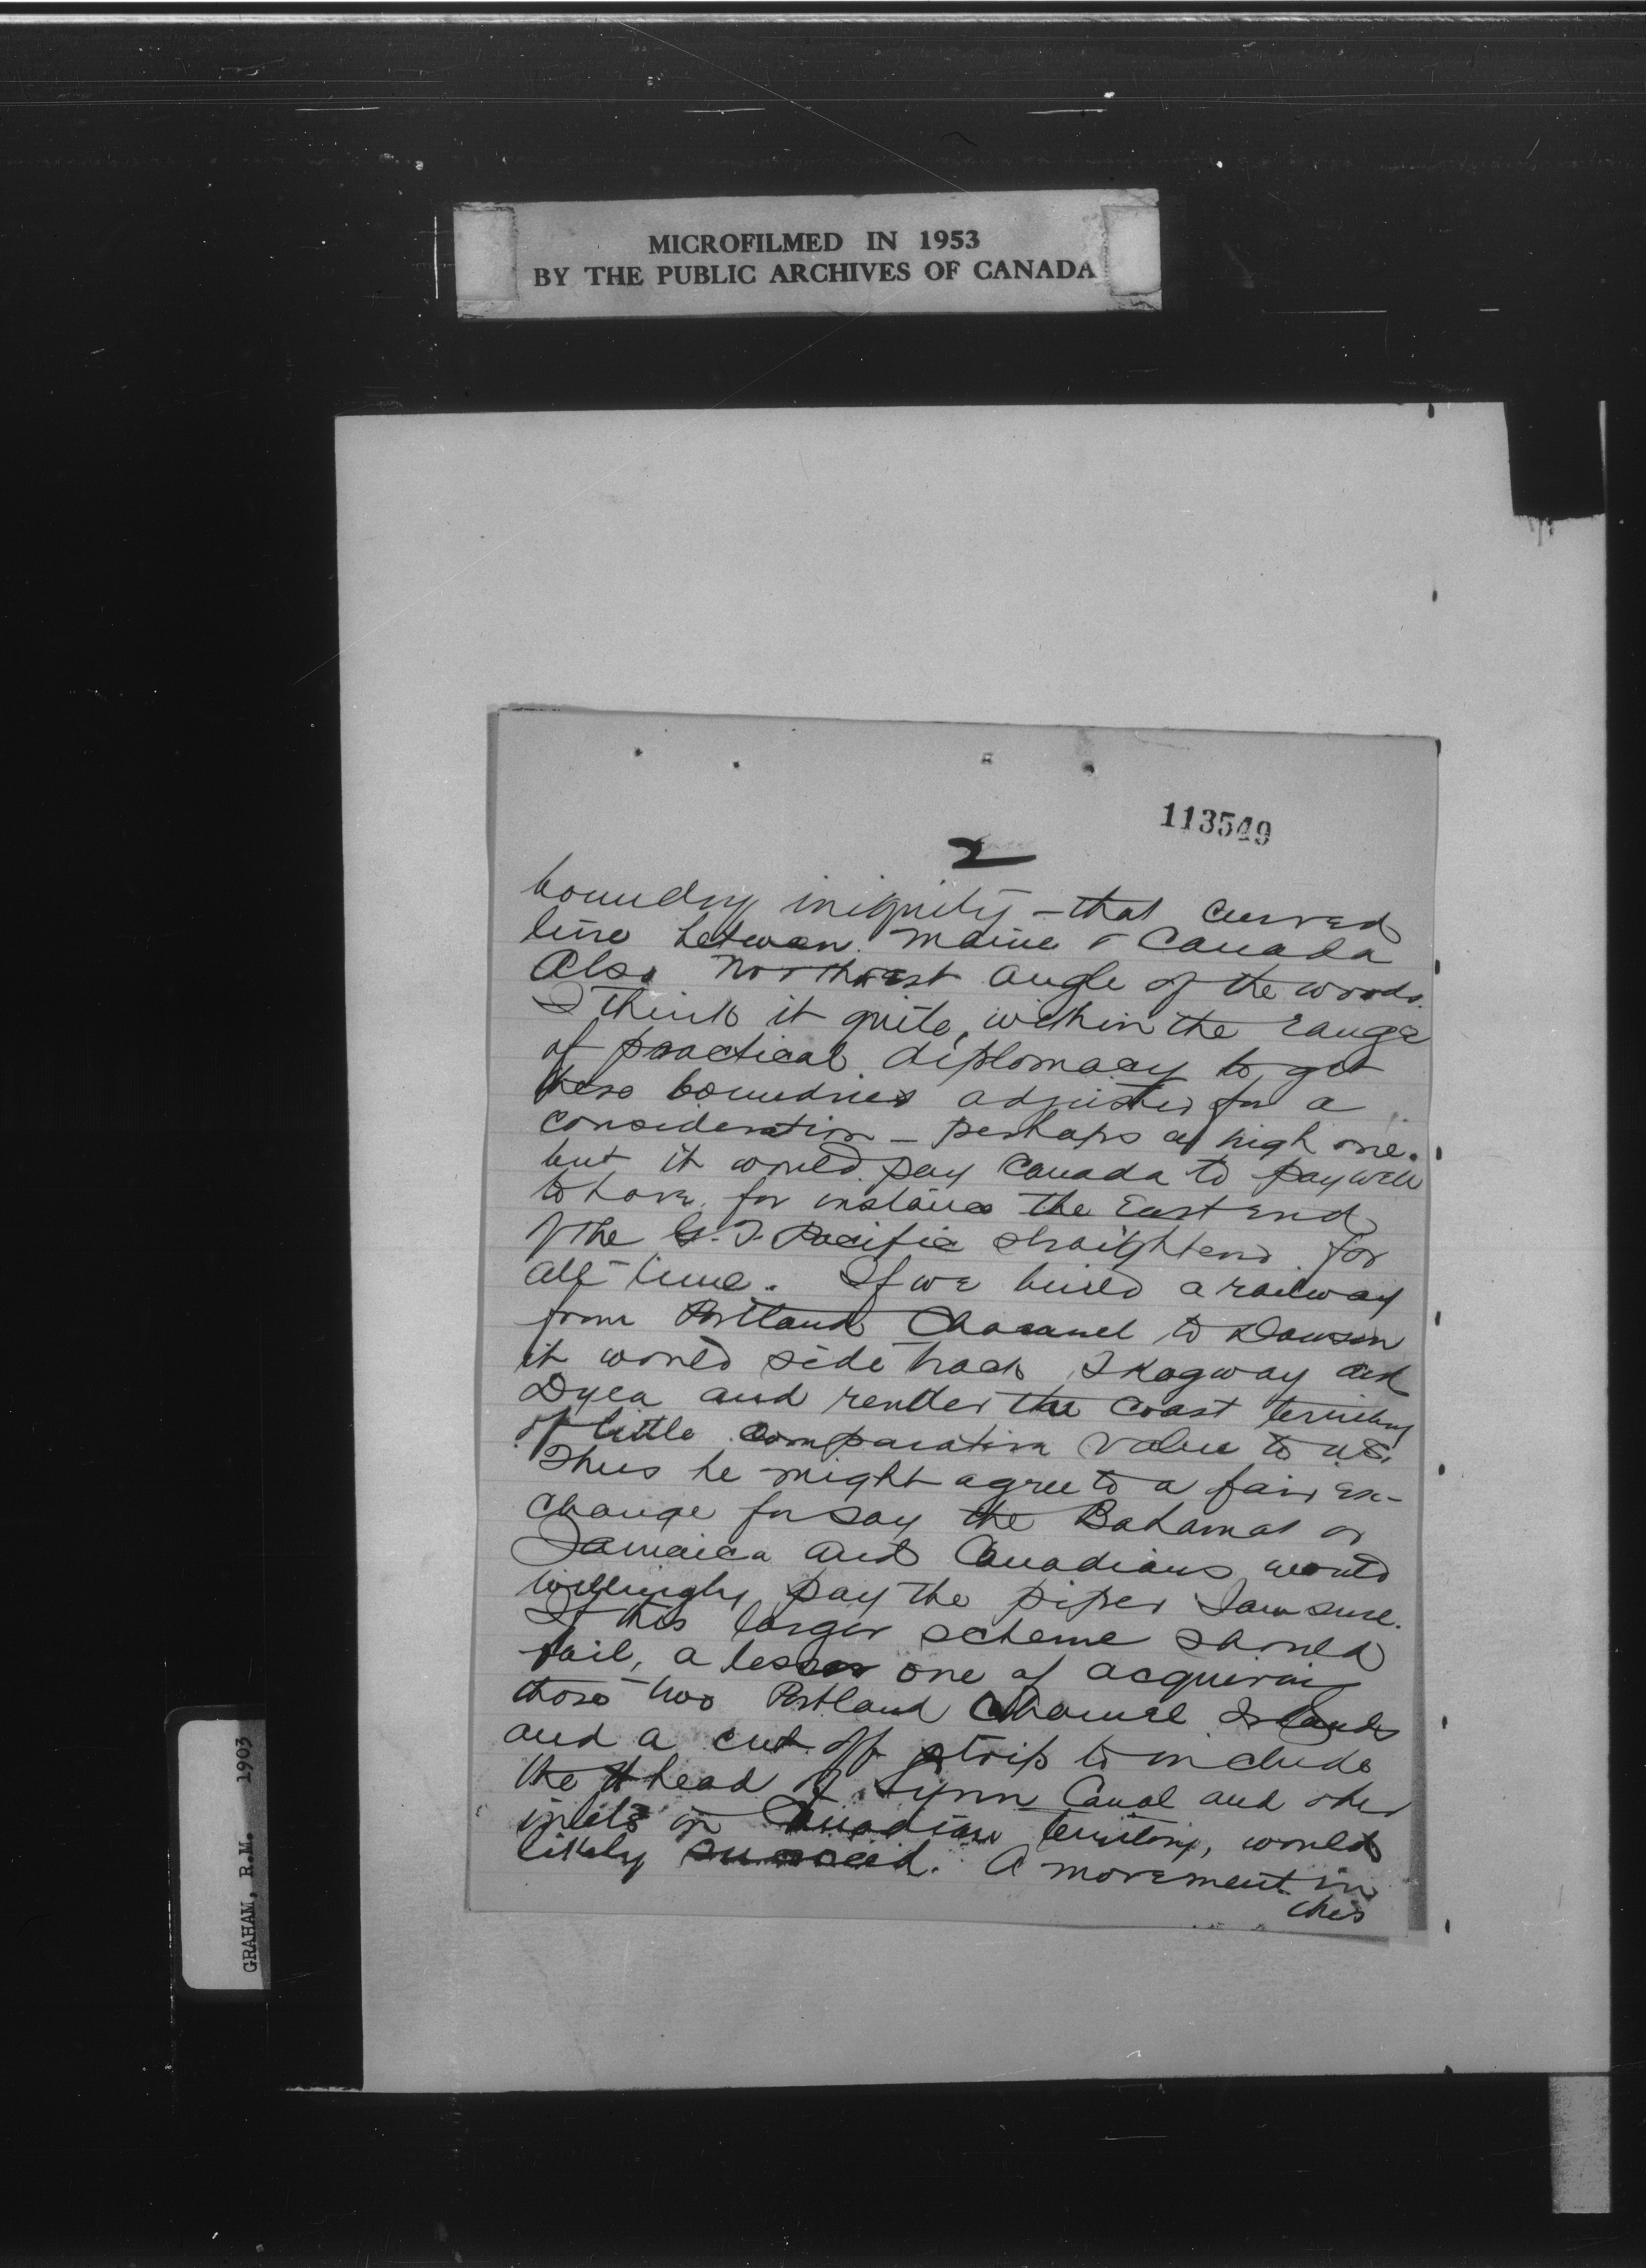 MICROFILMED IN 1953
BY THE PUBLIC ARCHIVES OF CANADA
113549
2
boundry iniquity - that curved
line between Maine & Canada
Also Northwest angle of the woods.
I think it quite within the range
of practical diplomacy to get
these boundries adjusted for a
consideration - perhaps a high one.
but it would pay Canada to pay well
to have for instance the East end
of the G. T. Pacific straightend for
all time. If we build a railway
from Portland Channel to Dawson
it would side track Skagway and
Dyea and render the coast territory
of little comparative value to U.S.
Thus he might agree to a fair ex-
change for say the Bahamas or
Jamaica and Canadians would
willingly pay the piper I am sure.
If this larger scheme should
fail, a lesser one of acquiring
those two Portland Channel Islands
and a cut off strip to include
the head of Lynn Canal and other
inlets in Canadian territory, would
likely succeed. A movement in
this
GRAHAM, R.M. 1903